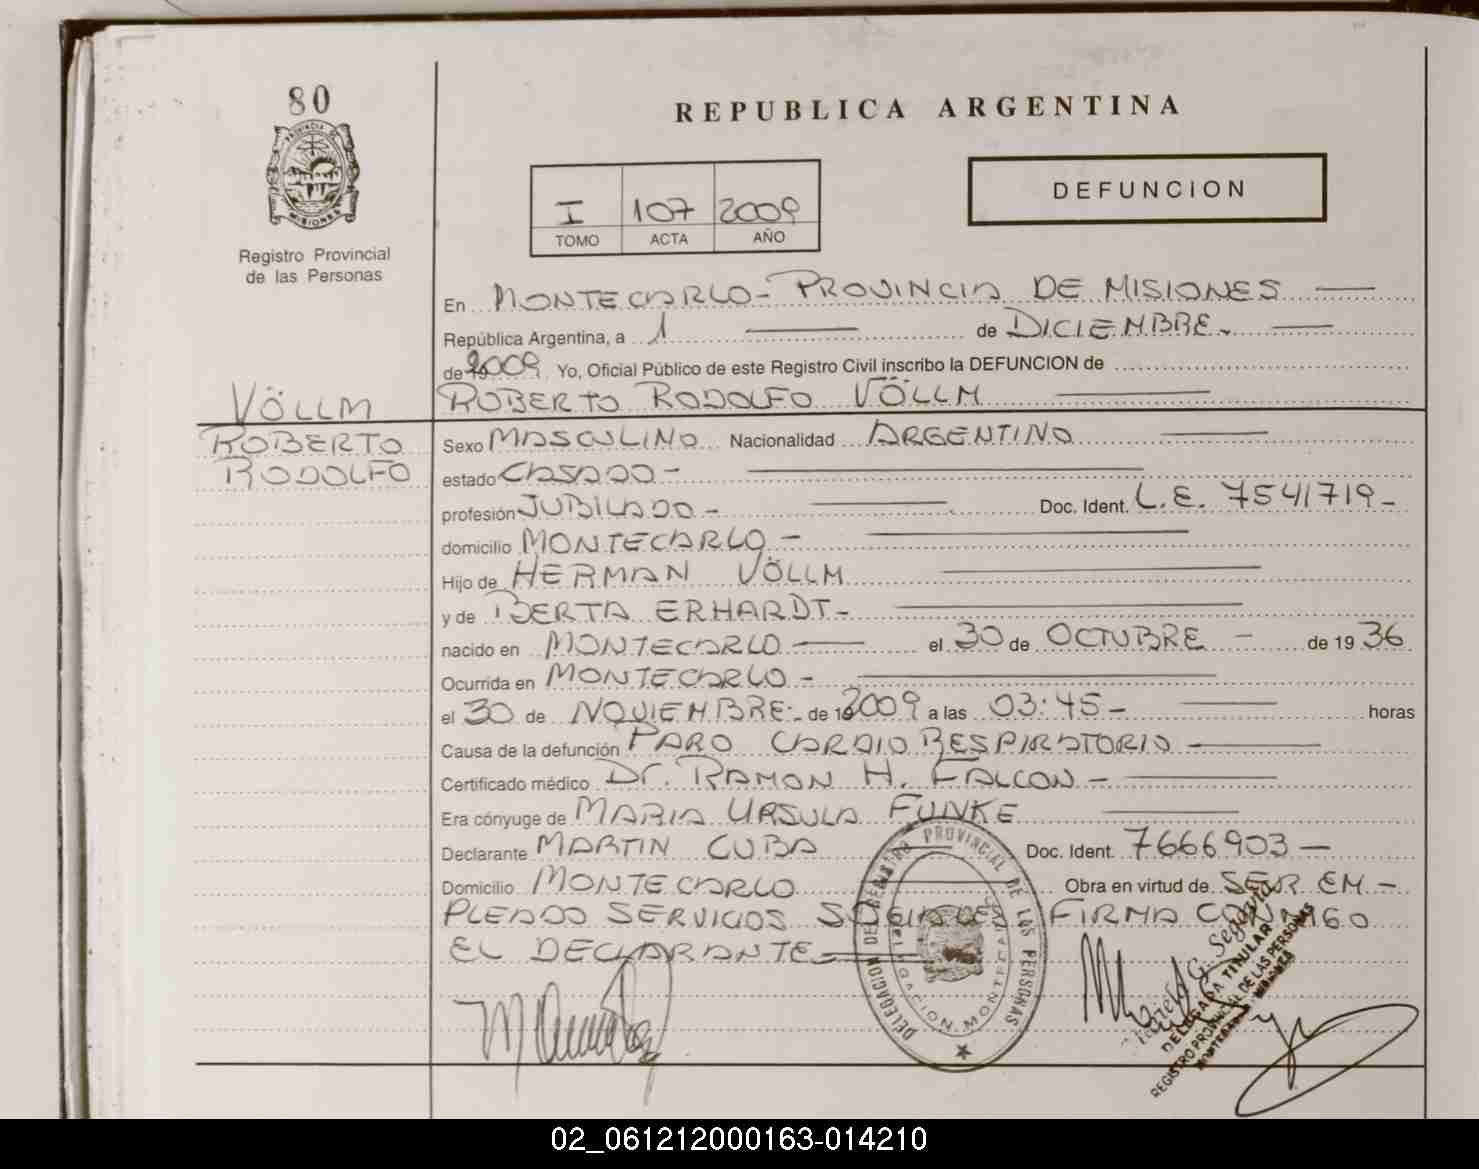 80
PROVINCIA DE
MISIONES
Registro Provincial
de las Personas
REPUBLICA ARGENTINA
I 107 2009
TOMO ACTA AÑO
DEFUNCION
En MONTECARLO - PROVINCIA DE MISIONES
República Argentina, a 1 de DICIEMBRE
de 2009 Yo, Oficial Público de este Registro Civil inscribo la DEFUNCION de
VÖLLM ROBERTO RODOLFO VÖLLM
ROBERTO Sexo MASCULINO Nacionalidad ARGENTINO
RODOLFO estado CASADO -
profesión JUBILADO - Doc. Ident. L.E. 7541719 -
domicilio MONTECARLO -
Hijo de HERMAN VÖLLM
y de BERTA ERHARDT -
nacido en MONTECARLO el 30 de OCTUBRE - de 1936
Ocurrida en MONTECARLO -
el 30 de NOVIEMBRE - de 2009 a las 03:45 - horas
Causa de la defunción PARO CARDIO RESPIRATORIO -
Certificado médico Dr. RAMON H. FALCON -
Era cónyuge de MARIA URSULA FUNKE
Declarante MARTIN CUBA Doc. Ident. 7666903 -
Domicilio MONTECARLO Obra en virtud de SER EM -
PLEADO SERVICIOS SOCIALES FIRMA CONMIGO
EL DECLARANTE
DELEGACION DEL REGISTRO PROVINCIAL DE LAS PERSONAS
DELEGADA TITULAR
REGISTRO PROVINCIAL DE LAS PERSONAS
02_061212000163-014210